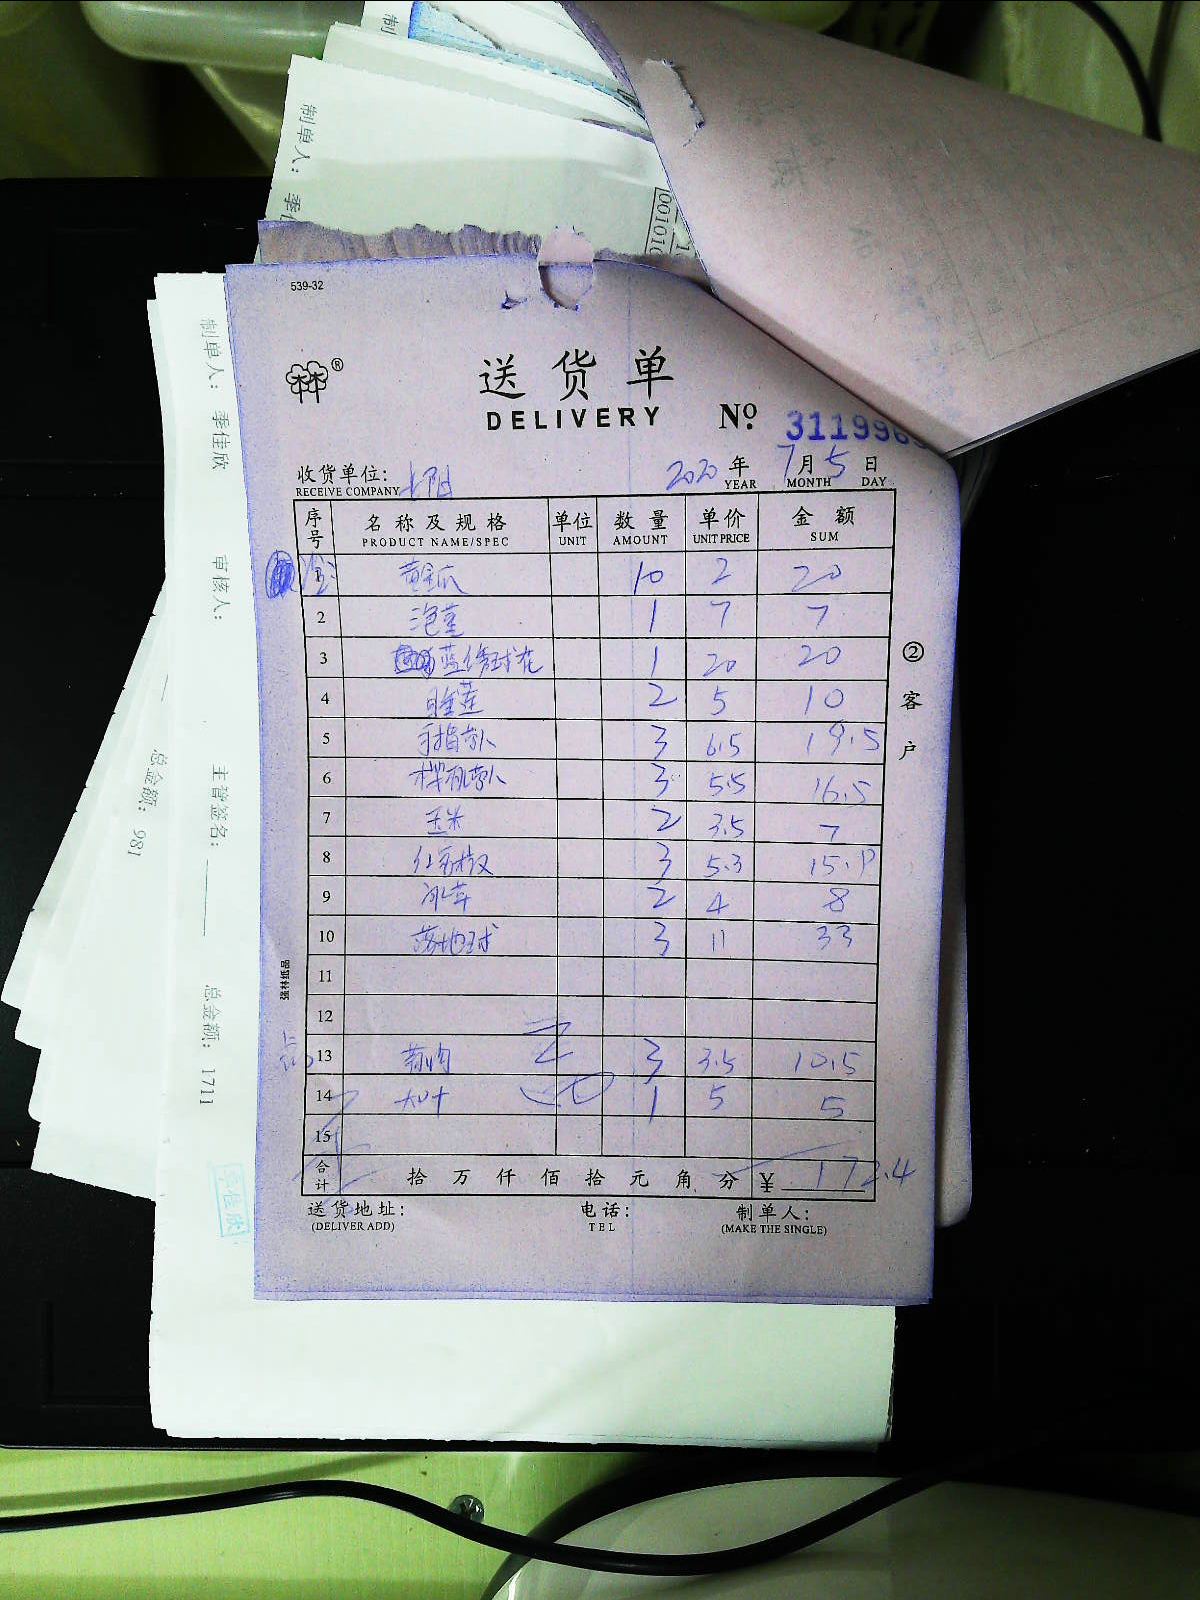 539-32
送货单
DELIVERY
№ 311996
收货单位:
RECEIVE COMPANY
2020 年 7 月 5 日
YEAR MONTH DAY
序号 名称及规格 单位 数量 单价 金额
PRODUCT NAME/SPEC UNIT AMOUNT UNIT PRICE SUM
1 黄金瓜 10 2 20
2 泡茎 1 7 7
3 蓝绣球花 1 20 20
4 睡莲 2 5 10
5 手指 3 6.5 19.5
6 3 5.5 16.5
7 玉米 2 3.5 7
8 3 5.3 15.9
9 冰草 2 4 8
10 落地球 3 11 33
11
12
13 3 3.5 10.5
14 1 5 5
15
合计 拾 万 仟 佰 拾 元 角 分 ¥ 172.4
送货地址: 电话: 制单人:
(DELIVER ADD) TEL (MAKE THE SINGLE)
② 客户
强林纸品
制单人: 季佳欣 审核人: 主管签名: 总金额: 1711
季佳欣
总金额: 981
制单人: 季